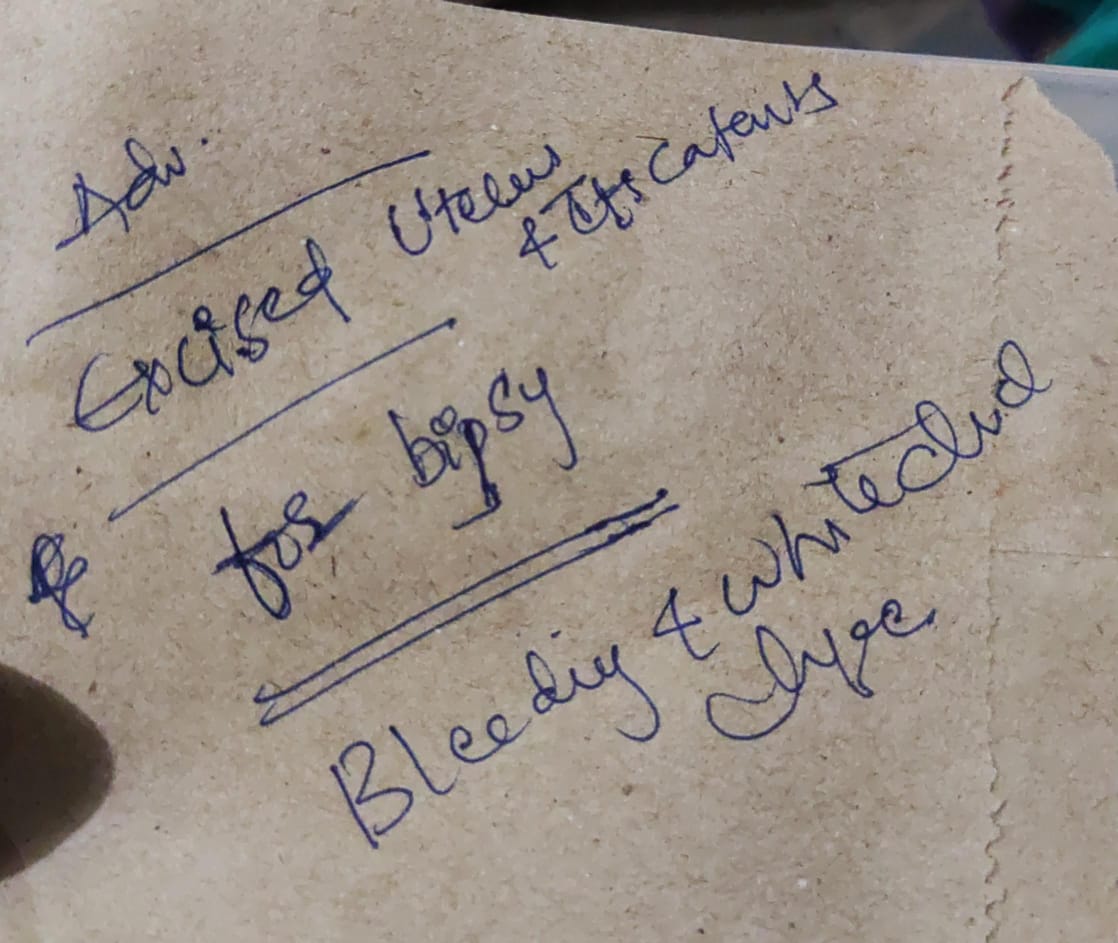 Adv.
Excised Uterus
& Its Contents
for bipsy
Bleeding & white